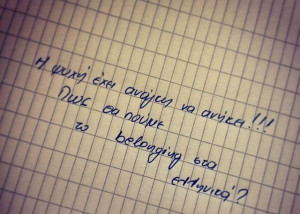 Η ψυχή έχει ανάγκη να ανήκει!!!
Πως θα πούμε
το belonging στα
ελληνικά?